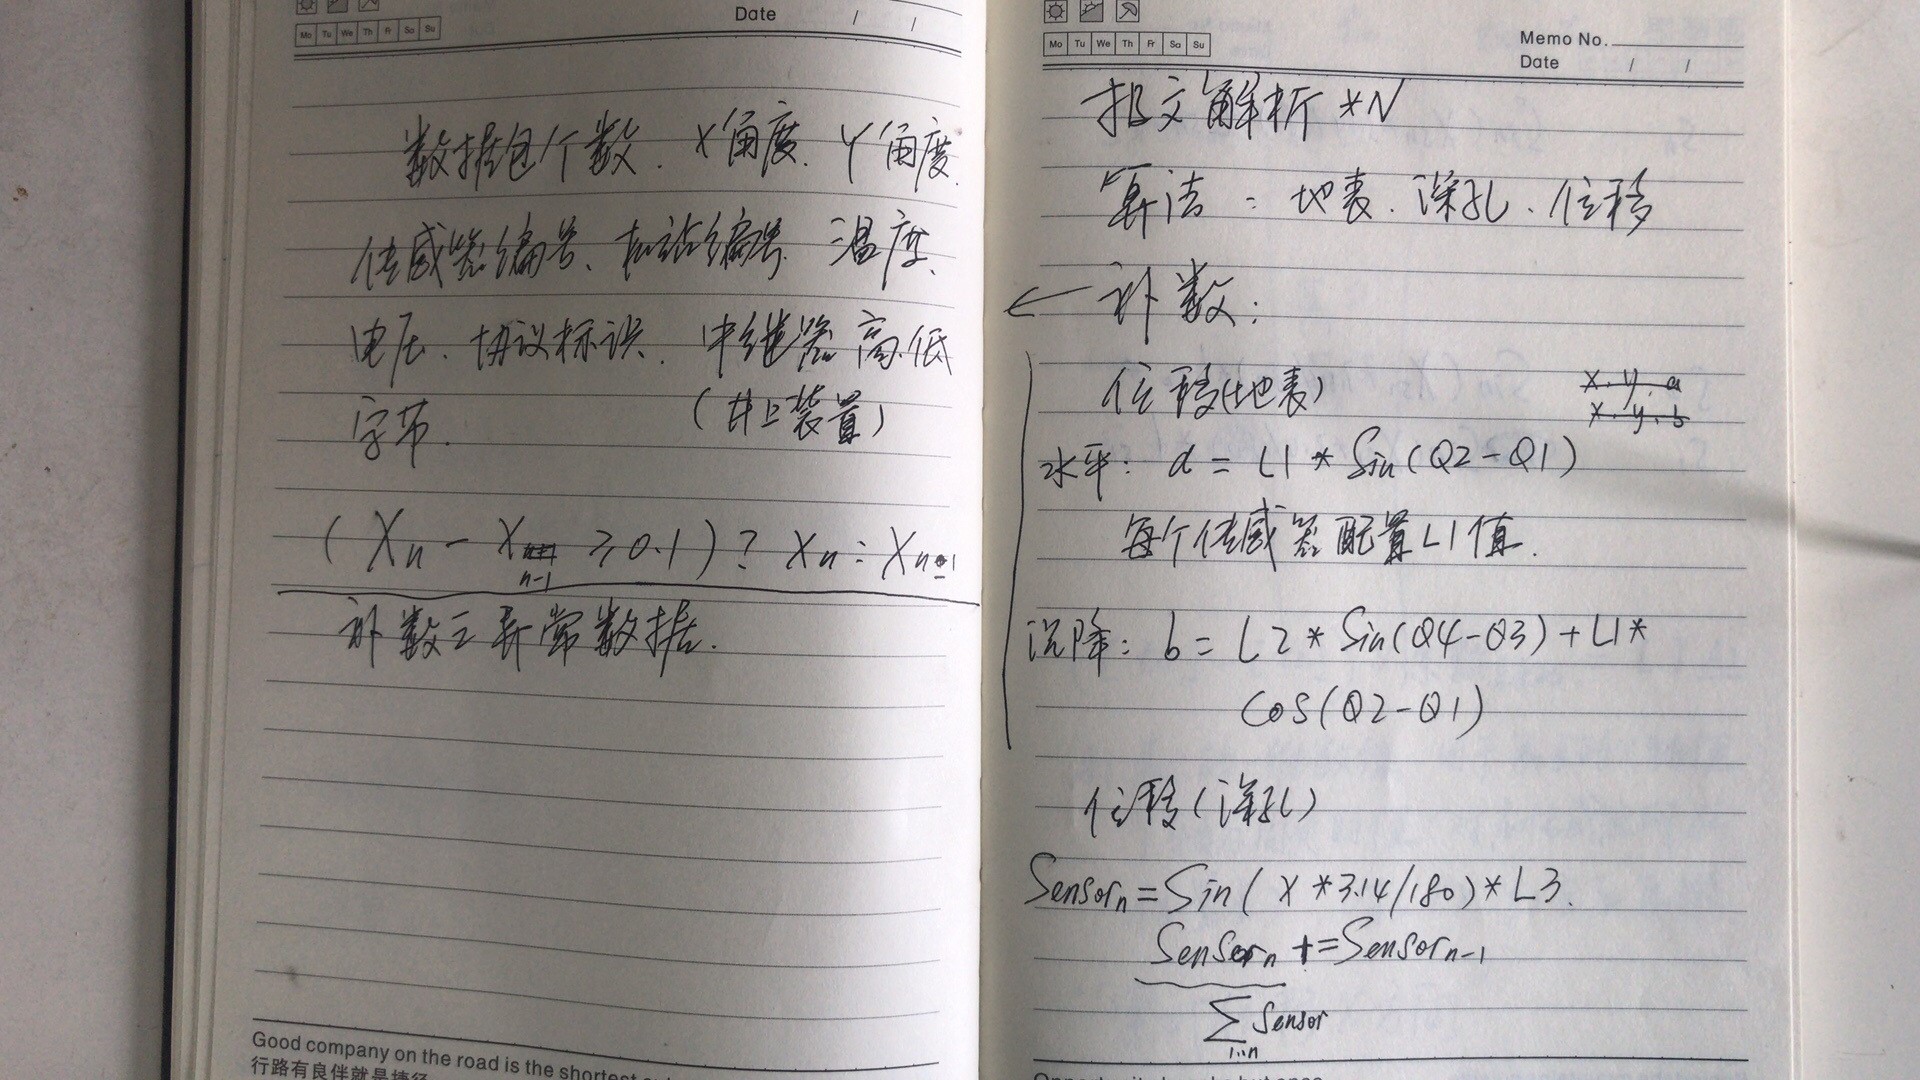 Date / /
Mo Tu We Th Fr Sa Su
数据包个数、X角度、Y角度、
传感器编号、基站编号、温度、
电压、协议标识、中继器高、低
字节. (井上装置)
(Xn - Xn-1 ≥0.1) ? Xn : Xn-1
补数:异常数据.
Good company on the road is the shortest
行路有良伴就是捷径
Mo Tu We Th Fr Sa Su
Memo No.
Date / /
报文解析 *N
算法:地表、深孔、位移
← 补数:
位移(地表)
x. y. a
x. y. b
水平: a = L1 * Sin(Q2-Q1)
每个传感器配置L1值.
沉降: b = L2 * Sin(Q4-Q3) + L1*
Cos(Q2-Q1)
位移(深孔)
Sensorn = Sin( X *3.14/180) * L3.
Sensorn += Sensorn-1
∑ Sensor
1..n